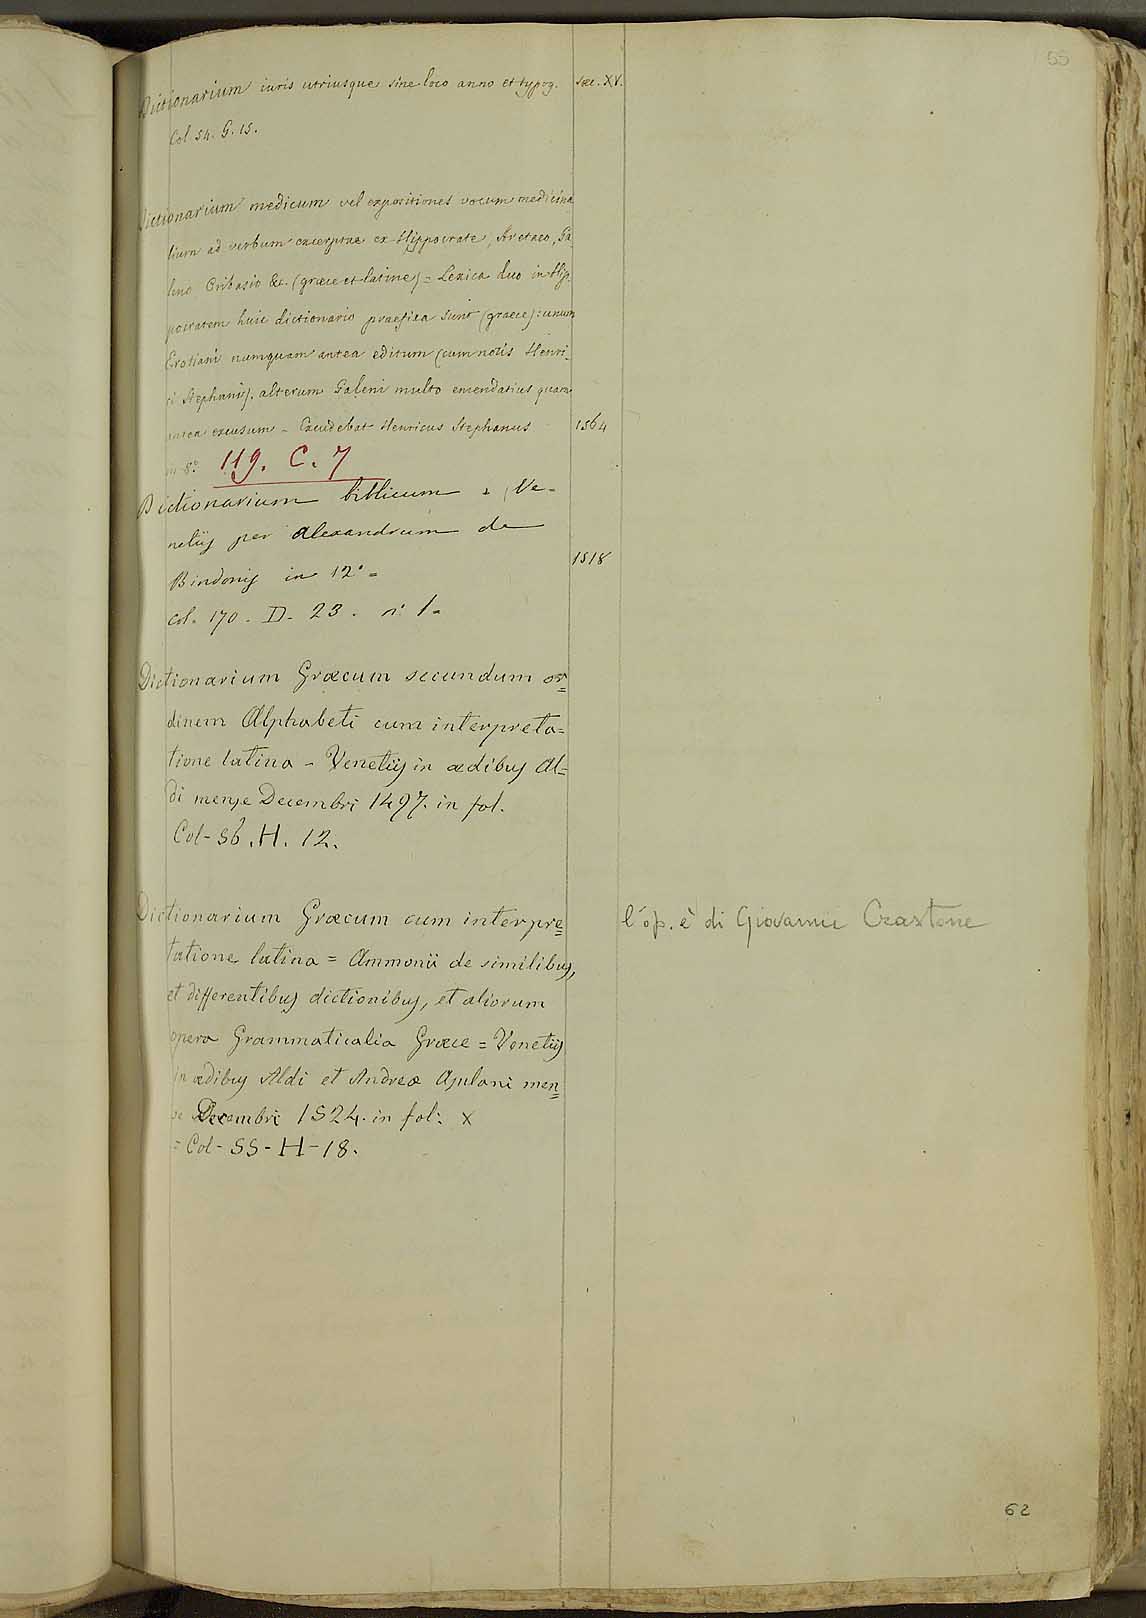 55
Dictionarium iuris utriusque sine loco anno et typog. sæc. XV.
Col. 54. G. 15.
Dictionarium medicum vel expositiones vocum medicina
lium ad verbum excerptae ex Hippocrate, Aretaeo, Ga-
leno Oribasio &c. (græce et latine) = Lexica duo in Hip-
pocratem huic dictionario praefixa sunt (graece): unum
Erotiani numquam antea editum (cum notis Henri-
ci Stephani), alterum Galeni multo emendatius quam
antea excusum - Excudebat Henricus Stephanus 1564
in 8° 119. C. 7
Dictionarium biblicum = Ve-
netijs per Alexandrum de
Bindonis in 12° = 1518
col. 170. D. 23. n° 1.
Dictionarium Græcum secundum or=
dinem Alphabeti cum interpreta=
tione latina - Venetiis in ædibus Al=
di mense Decembri 1497. in fol.
Col - 56. H. 12.
Dictionarium Græcum cum interpre= l'op. è di Giovanni Crastone
tatione latina = Ammonii de similibus,
et differentibus dictionibus, et aliorum
opera Grammaticalia Græce = Venetiis
in ædibus Aldi et Andreæ Asulani men=
se Decembri 1524. in fol: x
= Col - 55 - H - 18.
62